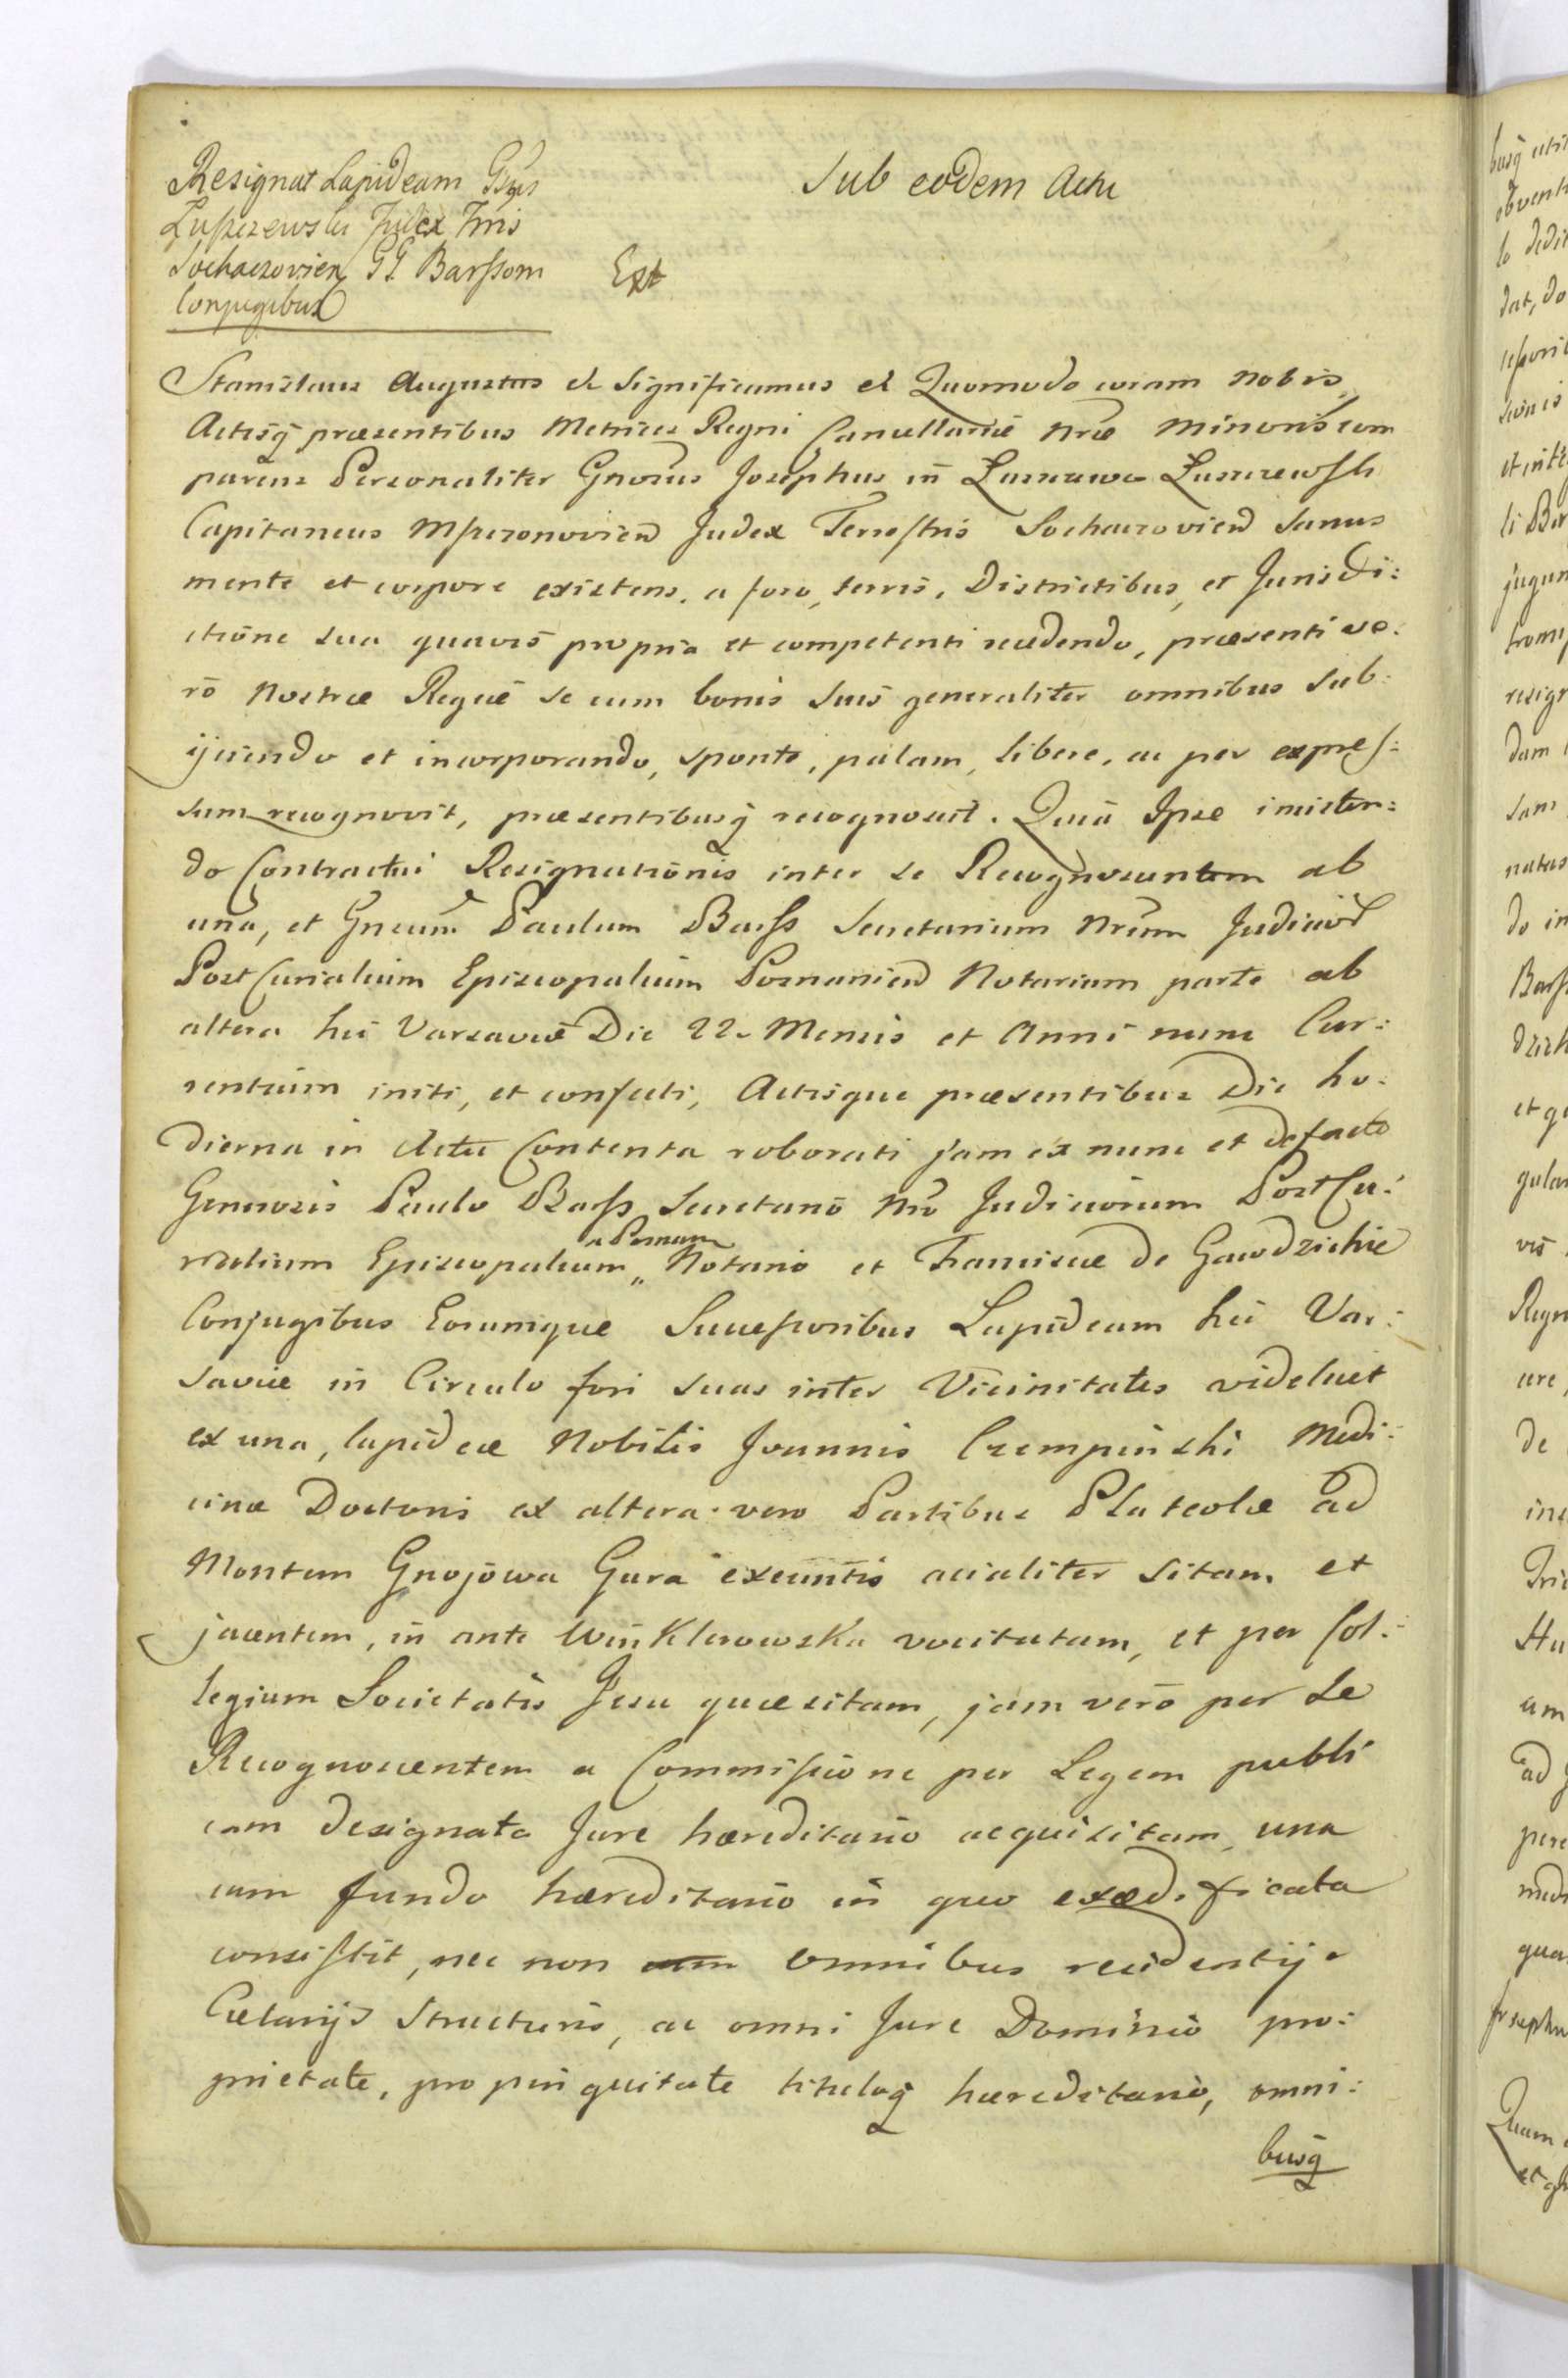 Resignat Lapideam Gsus
Luszczewski Judex Trris
Sochaczovien GG Barssom
Conjugibus
Sub eodem Actu
Ext
Stanislaus Augustus et Significamus et Quomodo coram nobis
Actisq præsentibus Metrices Regni Cancellariæ nræ Minoris com
parens Personaliter Gnosus Josephus in Luszczewo Luszczewski
Capitaneus Mszczonovien Judex Terrestris Sochaczovien Sanus
mente et corpore existens, a foro, terris, Districtibus, et Jurisdi:
ctione sua quavis propria et competenti recedendo, præsenti ve:
ro Nostræ Regiæ se cum bonis suis generaliter omnibus Sub:
ijciendo et incorporando, sponte, palam, libere, ac per expres:
sum recognovit, præsentibusq recognoscit. Quia Ipse inisten:
do Contractui Resignationis inter se Recognoscentem ab
una, et Gnerum Paulum Barss Secretarium Nrum Judicior
PostCurialium Episcopalium Posnanien Notarium parte ab
altera hic Varsaviæ Die 22. Mensis et Anni nunc Cur:
rentium initi, et confecti, Actisque præsentibus Die ho:
dierna in Actu Contenta roborati jam ex nunc et defacto
Generosis Paulo Barss Secretario Nro Judiciorum PostCu:
rialium Episcopalium " Posnan " Notario et Franciscæ de Gawdzickie
Conjugibus Eorumque Successoribus Lapideam hic Var:
saviæ in Circulo fori suas inter Vicinitates videlicet
ex una, lapideæ Nobilis Joannis Czempinski Medi:
cinæ Doctoris ex altera vero Partibus Plateolæ ad
Montem Gnojowa Gura exeuntis acialiter sitam et
jacentem, in ante Winklerowska vocitatam, et per Col:
legium Societatis Jesu quæsitam, jam vero per Se
Recognoscentem a Commissione per Legem publi
cam designata Jure hæreditario acquisitam, una
cum fundo hæreditario in quo exædificata
consistit, nec non omnibus residentijs
Cælarijs Structuris, ac omni Jure Dominio pro:
prietate, propinquitate tituloq hæreditario, omni:
busq